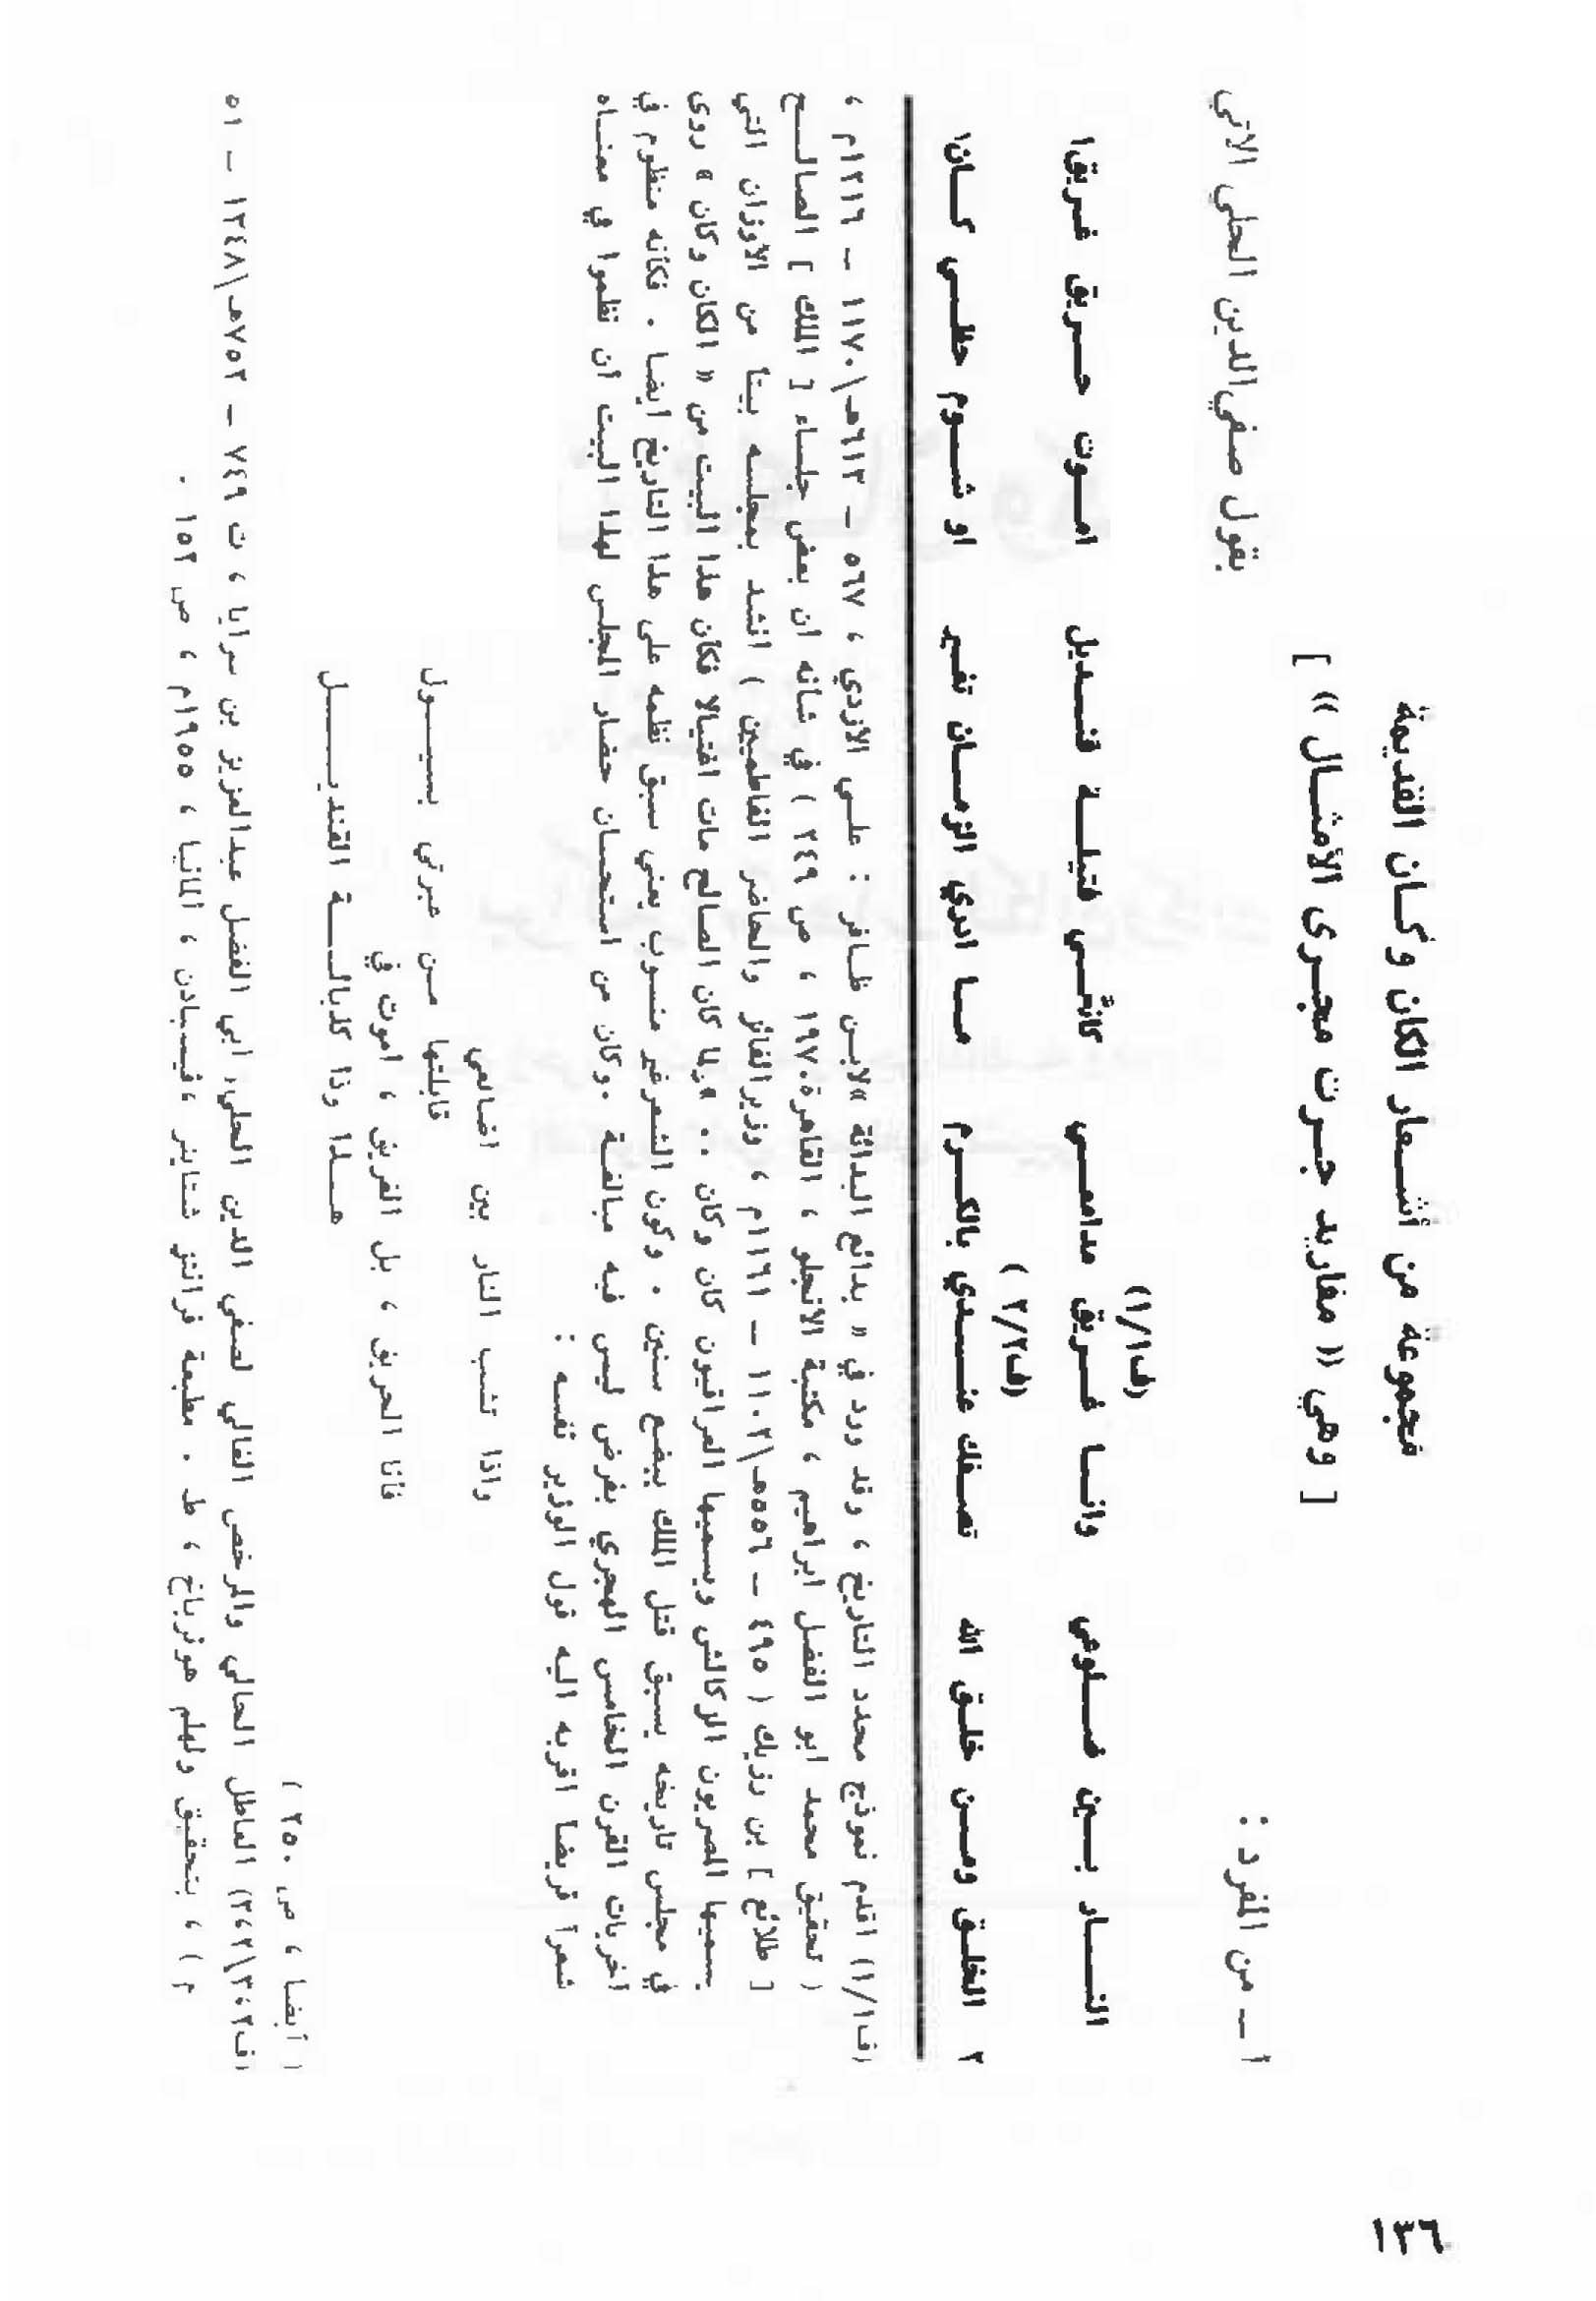 ١٣٦
مجموعة من أشـعار الكان وكـان القديمة
[ وهي « مفاريد جـرت مجـرى الأمثـال » ]
أ – من المفرد :
بقول صفي الدين الحلي الاتي
(ف١/١)
النـــار بــين ضـلوعي وانــا غـريق مدامعـي كأنّـي فتيلــة قنـديل امـوت حـريق غـريق١
(ف٢/٢ )
٢ الخلق ومـن خلـق الله تصـفك عنــدي بالكـرم مــا ادري الزمـان تغـير او شـوم حظـي كـان١
(ف١/١) اقدم نموذج محدد التاريخ ، وقد ورد في « بدائع البدائة »لابـن ظـافر : علـي الازدي ، ٥٦٧ – ٦١٣هـ\١١٧٠ – ١٢١٦م ،
( تحقيق محمد ابو الفضل ابراهيم ، مكتبة الأنجلو ، القاهرة١٩٧٠ ، ص ٢٤٩ ) في شأنه ان بعض جلساء [ الملك ] الصالــح
[ طلائع ] بن رزيك ( ٤٩٥ – ٥٥٦هـ\١١٠٢ – ١١٦١م ، وزيرالفائز والحاضر الفاطميين ) انشد بمجلسه بيتاً من الأوزان التي
يسميها المصريون الزكالش ويسميها العراقيون كان وكان . . «ولما كان الصالح مات اغتيالا فكأن هذا البيت من « الكان وكان » روى
في مجلس تاريخه يسبق قتل الملك ببضع سنين . وكون الشعرغير منسوب يعني سبق نظمه على هذا التاريخ ايضا . فكأنه منظوم في
أخريات القرن الخامس الهجري بغرض ليس فيه مبالغـة .وكان من استحسان حضار المجلس لهذا البيت أن نظموا في معنـاه
شعراً قريضا اقربه اليه قول الوزير نفسه :
واذا تشب النار بين اضالعي
قابلتها مـن عبرتي بسيــول
فأنا الحريق ، بل الغريق ، اموت في
هــذا وذا كذبالـــة القنديـــــل
( أيضا ، ص ٢٥٠ )
(ف٢،٣\٢،٣) العاطل الحالي والمرخص الغالي لصفي الدين الحلي، ابي الفضل عبدالعزيز بن سرايا ، ت ٧٤٩ – ٧٥٢هـ\١٣٤٨ – ٥١
م ) ، بتحقيق ولهلم هونرباخ ، ط . مطبعة فرانتز شتاينر ،فيـبادن ، المانيا ، ١٩٥٥م ، ص ١٥٢ .